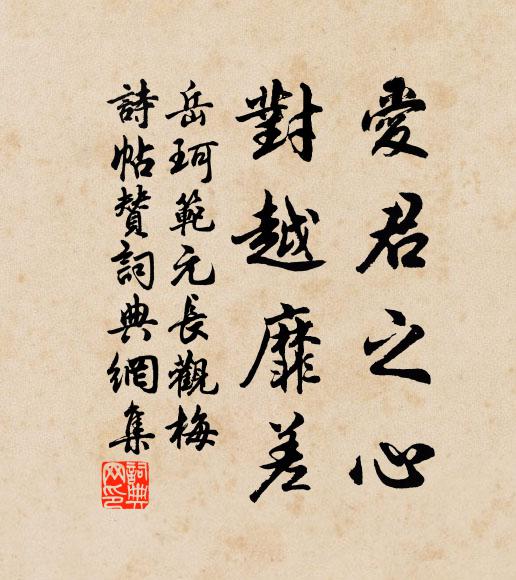 愛君之心
對越靡差
岳珂範元長觀梅
詩帖贊詞典網集
詞典網印